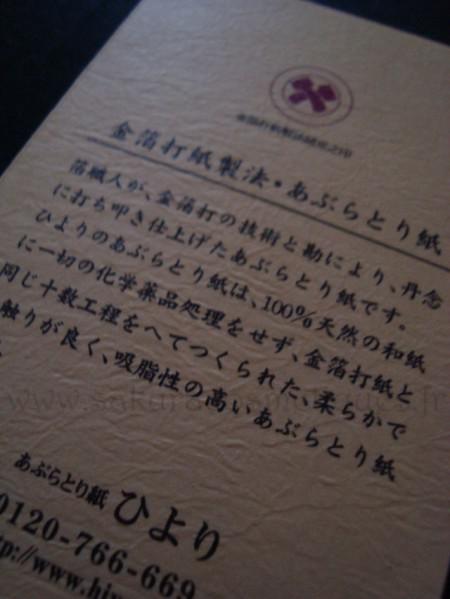 金箔打紙製法・あぶらとり紙
箔職人が、金箔打の技術と勘により、丹念
に打ち叩き仕上げたあぶらとり紙です。
ひよりのあぶらとり紙は、100%天然の和紙
に一切の化学薬品処理をせず、金箔打紙と
同じ十数工程をへてつくられた、柔らかで
触りが良く、吸脂性の高いあぶらとり紙
。
あぶらとり紙 ひより
0120-766-669
tp://www.hi